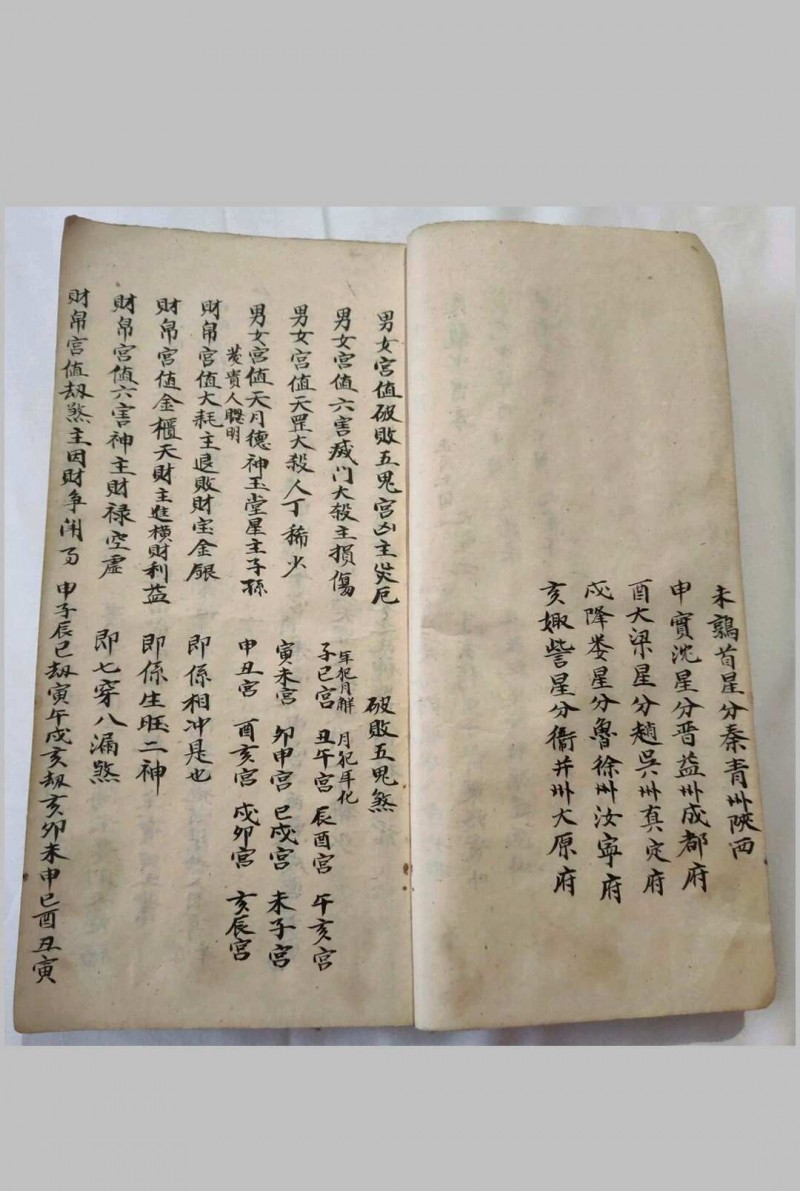 未鶉首星分秦青州陝西
申實沈星分晋益州成都府
酉大梁星分趙吳州真定府
戌降娄星分魯徐州汝寧府
亥娵訾星分衞并州大原府
男女宮值破敗五鬼宮凶主災厄
破敗五鬼煞
男女宮值六害滅门大殺主損傷
年犯月解 月犯年化
子巳宮 丑午宮 辰酉宮 午亥宮
男女宮值天罡大殺人丁稀少
寅未宮 卯申宮 巳戌宮 未子宮
男女宮值天月德神玉堂星主子孫
發貴人聰明
申丑宮 酉亥宮 戌卯宮 亥辰宮
財帛宮值大耗主退敗財宝金銀
即係相冲是也
財帛宮值金櫃天財主進橫財利益
即係生旺二神
財帛宮值六害神主財禄空虛
即七穿八漏煞
財帛宮值劫煞主因財争闹 申子辰巳劫寅午戌亥劫亥卯未申巳酉丑寅